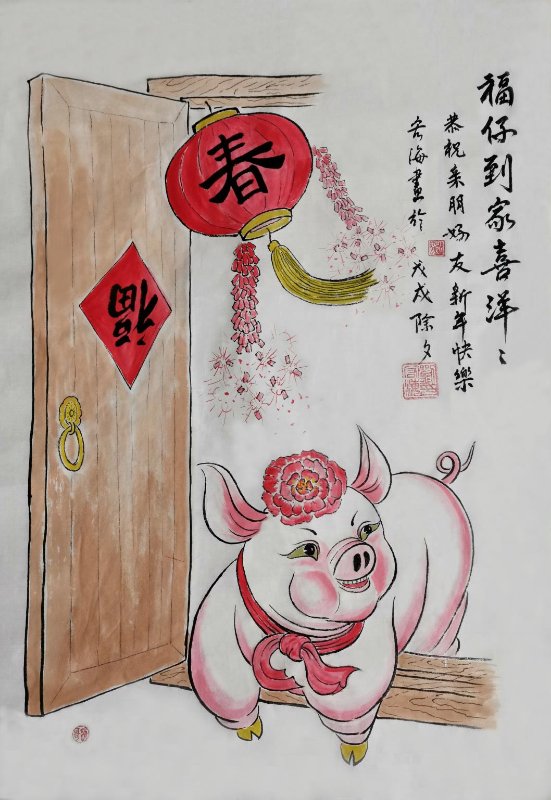 福仔到家喜洋〻
恭祝亲朋好友新年快樂
海畫於戊戌除夕
春
福